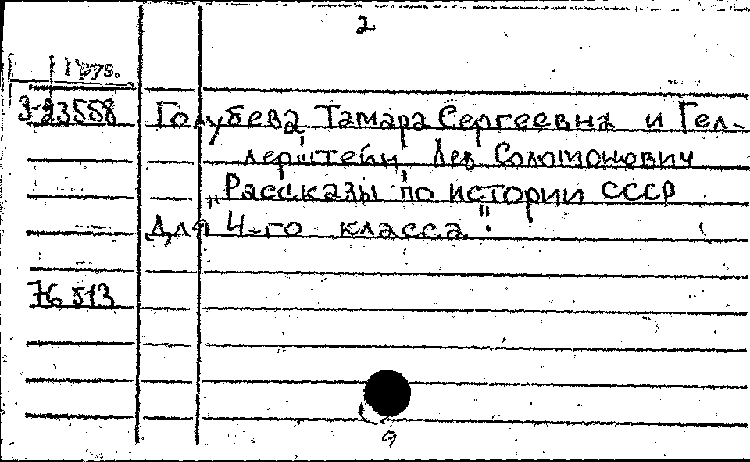 2
Груз.
3-23558 Голубева Тамара Сергеевна и Гел-
лерштейн Лев Соломонович
„Рассказы по истории СССР
для 4-го класса".
76 513